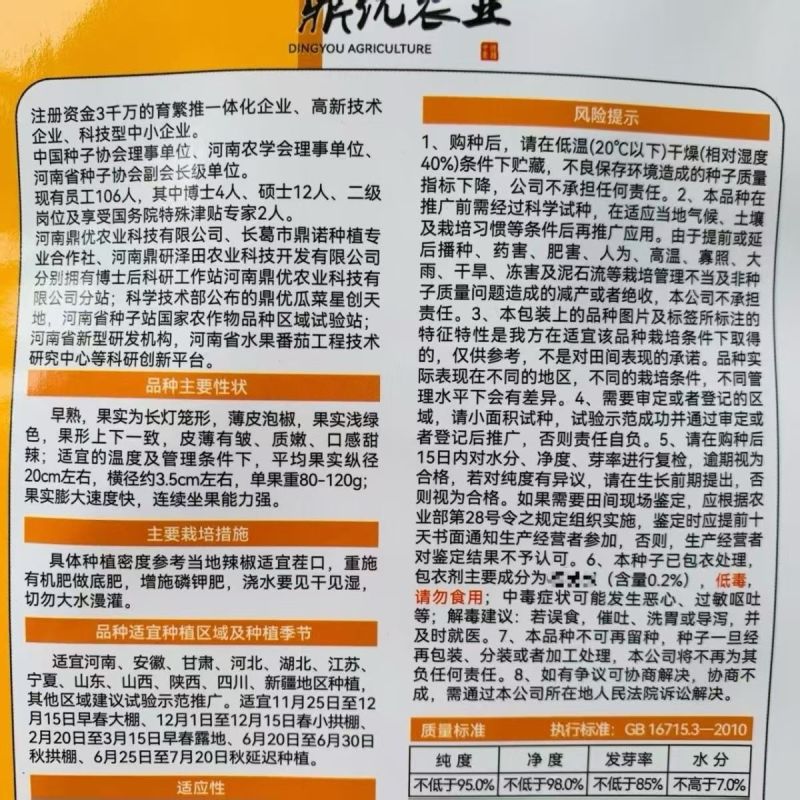 鼎优农业
DINGYOU AGRICULTURE
注册资金3千万的育繁推一体化企业、高新技术
企业、科技型中小企业。
中国种子协会理事单位、河南农学会理事单位、
河南省种子协会副会长级单位。
现有员工106人，其中博士4人、硕士12人、二级
岗位及享受国务院特殊津贴专家2人。
河南鼎优农业科技有限公司、长葛市鼎诺种植专
业合作社、河南鼎研泽田农业科技开发有限公司
分别拥有博士后科研工作站河南鼎优农业科技有
限公司分站；科学技术部公布的鼎优瓜菜星创天
地，河南省种子站国家农作物品种区域试验站；
河南省新型研发机构，河南省水果番茄工程技术
研究中心等科研创新平台。
品种主要性状
早熟，果实为长灯笼形，薄皮泡椒，果实浅绿
色，果形上下一致，皮薄有皱、质嫩、口感甜
辣；适宜的温度及管理条件下，平均果实纵径
20cm左右，横径约3.5cm左右，单果重80-120g；
果实膨大速度快，连续坐果能力强。
主要栽培措施
具体种植密度参考当地辣椒适宜茬口，重施
有机肥做底肥，增施磷钾肥，浇水要见干见湿，
切勿大水漫灌。
品种适宜种植区域及种植季节
适宜河南、安徽、甘肃、河北、湖北、江苏、
宁夏、山东、山西、陕西、四川、新疆地区种植，
其他区域建议试验示范推广。适宜11月25日至12
月15日早春大棚，12月1日至12月15日春小拱棚，
2月20日至3月15日早春露地、6月20日至6月30日
秋拱棚、6月25日至7月20日秋延迟种植。
适应性
风险提示
1、购种后，请在低温(20℃以下)干燥(相对湿度
40%)条件下贮藏，不良保存环境造成的种子质量
指标下降，公司不承担任何责任。2、本品种在
推广前需经过科学试种，在适应当地气候、土壤
及栽培习惯等条件后再推广应用。由于提前或延
后播种、药害、肥害、人为、高温、寡照、大
雨、干旱、冻害及泥石流等栽培管理不当及非种
子质量问题造成的减产或者绝收，本公司不承担
责任。3、本包装上的品种图片及标签所标注的
特征特性是我方在适宜该品种栽培条件下取得
的，仅供参考，不是对田间表现的承诺。品种实
际表现在不同的地区，不同的栽培条件，不同管
理水平下会有差异。4、需要审定或者登记的区
域，请小面积试种，试验示范成功并通过审定或
者登记后推广，否则责任自负。5、请在购种后
15日内对水分、净度、芽率进行复检，逾期视为
合格，若对纯度有异议，请在生长前期提出，否
则视为合格。如果需要田间现场鉴定，应根据农业
部第28号令之规定组织实施，鉴定时应提前十
天书面通知生产经营者参加，否则，生产经营者
对鉴定结果不予认可。6、本种子已包衣处理，
包衣剂主要成分为（含量0.2%），低毒，
请勿食用；中毒症状可能发生恶心、过敏呕吐
等；解毒建议：若误食，催吐、洗胃或导泻，并
及时就医。7、本品种不可再留种，种子一旦经
再包装、分装或者加工处理，本公司将不再为其
负任何责任。8、如有争议可协商解决，协商不
成，需通过本公司所在地人民法院诉讼解决。
质量标准 执行标准：GB 16715.3—2010
纯度 净度 发芽率 水分
不低于95.0% 不低于98.0% 不低于85% 不高于7.0%